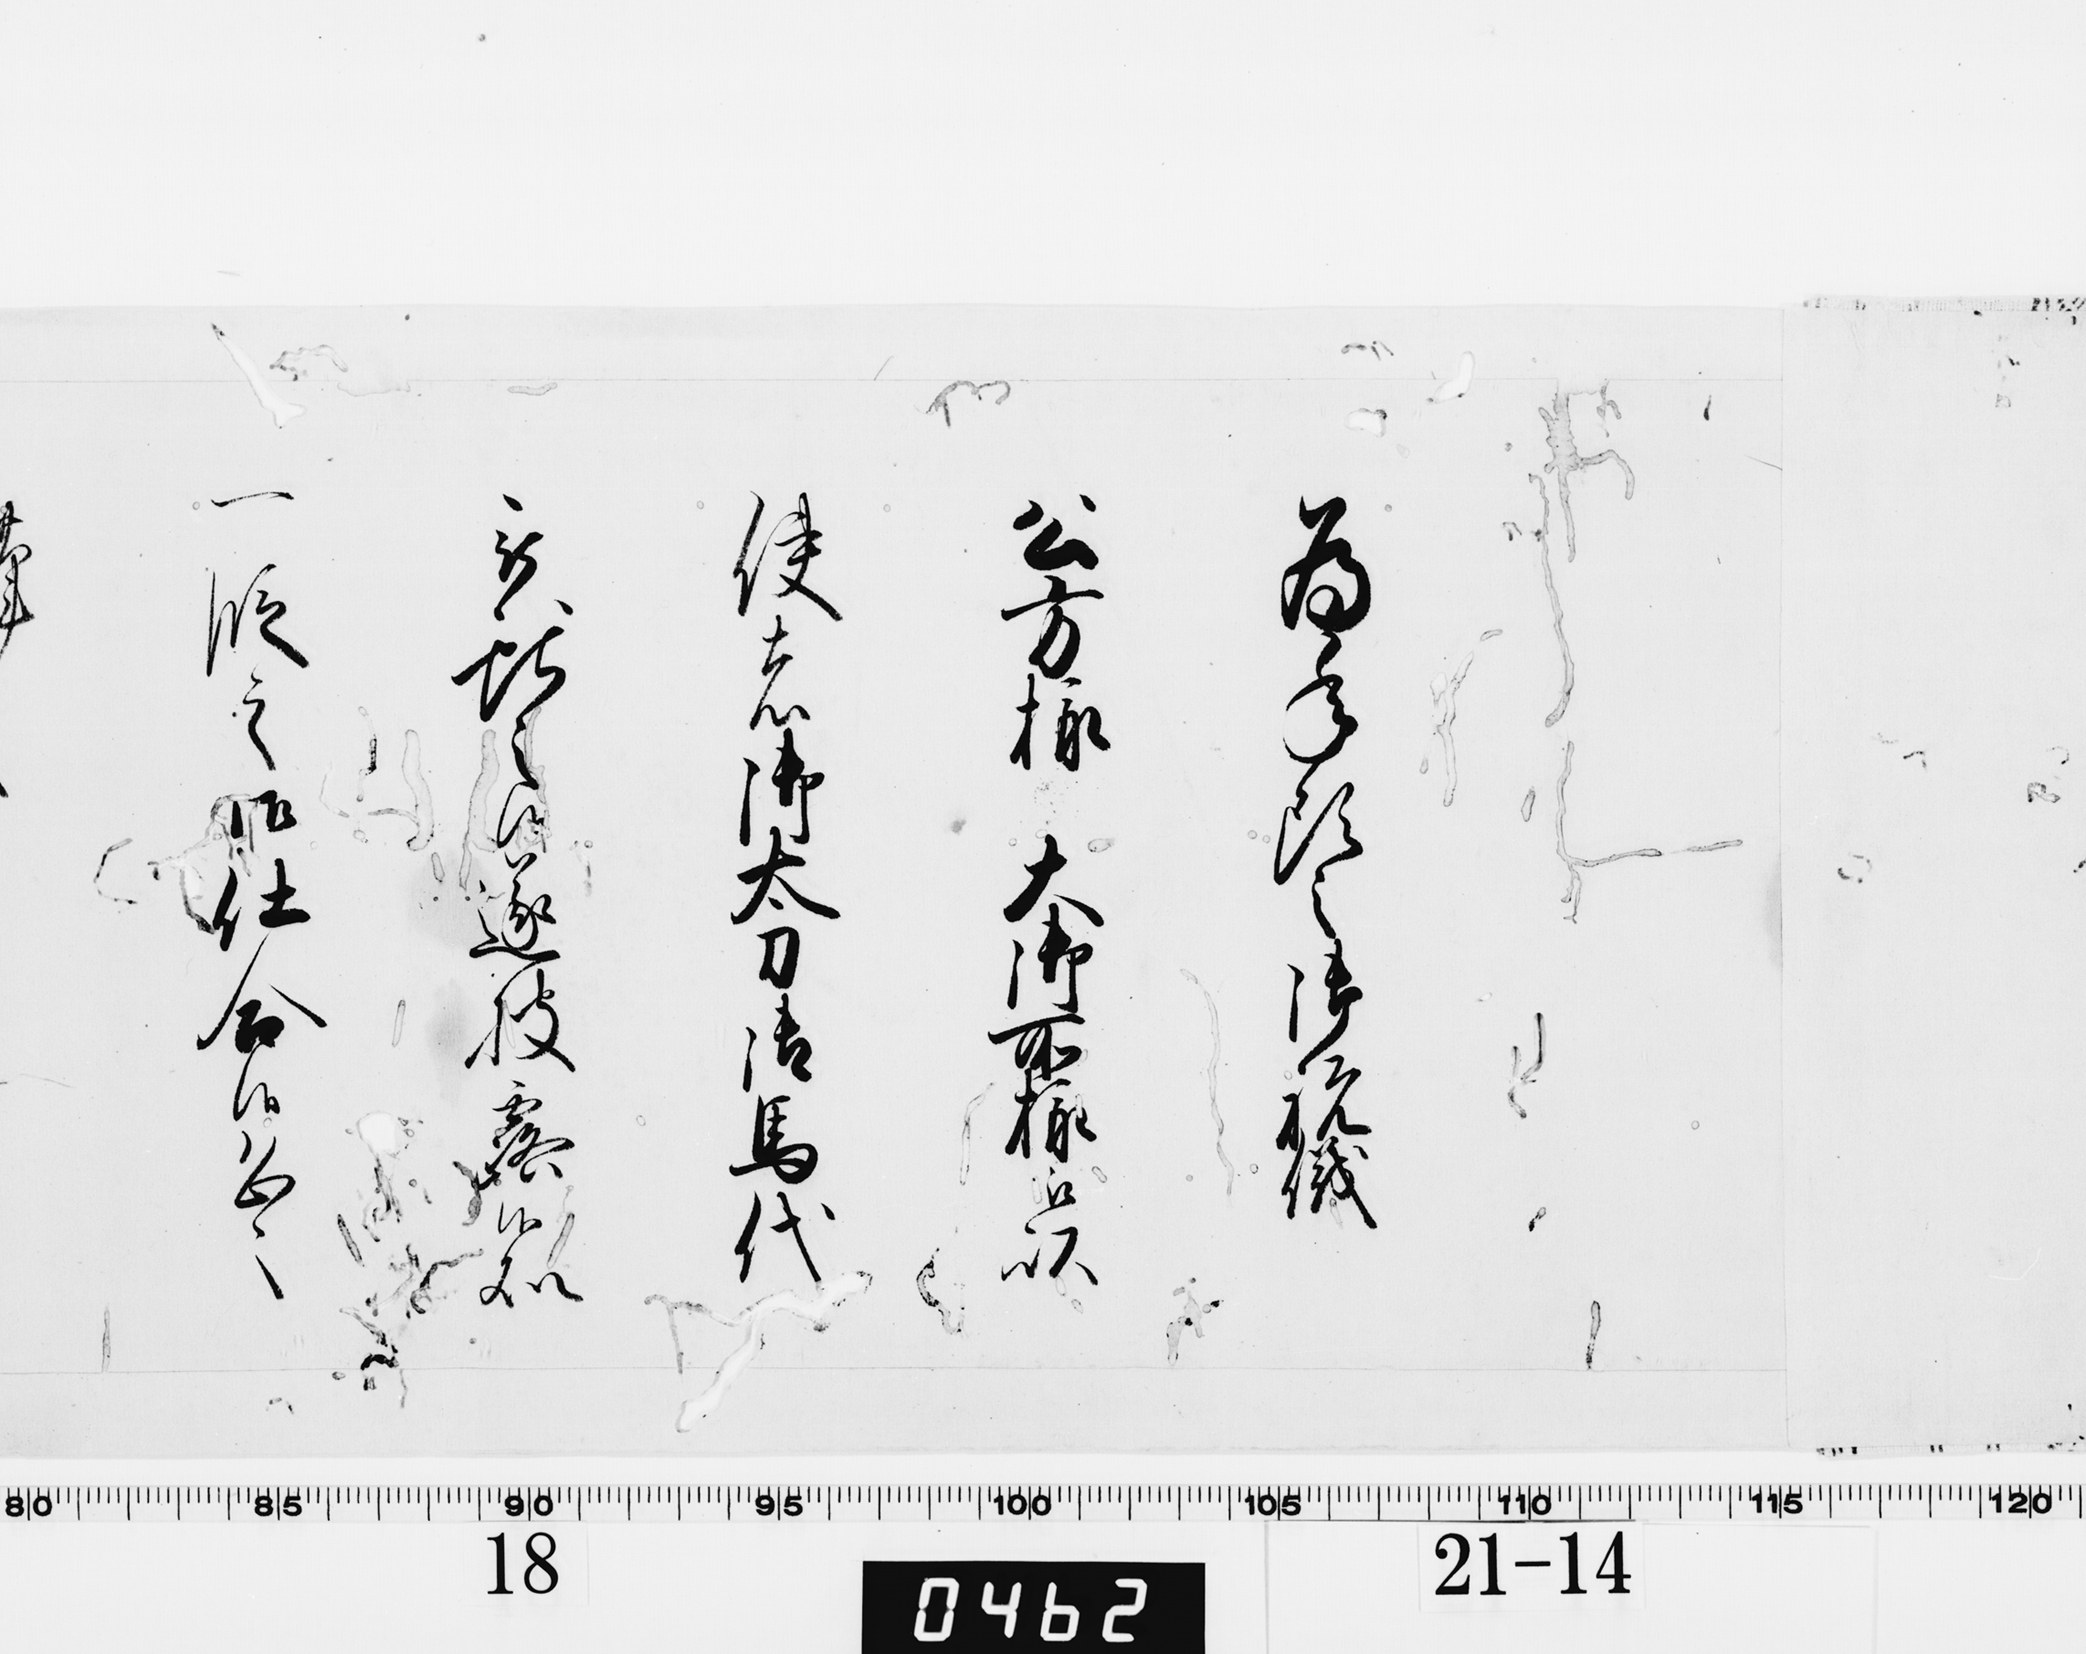 為年頭之御祝儀
公方様 大御所様江以
使者御太刀御馬代
被献之候遂披露候処
一段之御仕合候恐々
80 85 90 95 100 105 110 115 120
18 0462 21-14